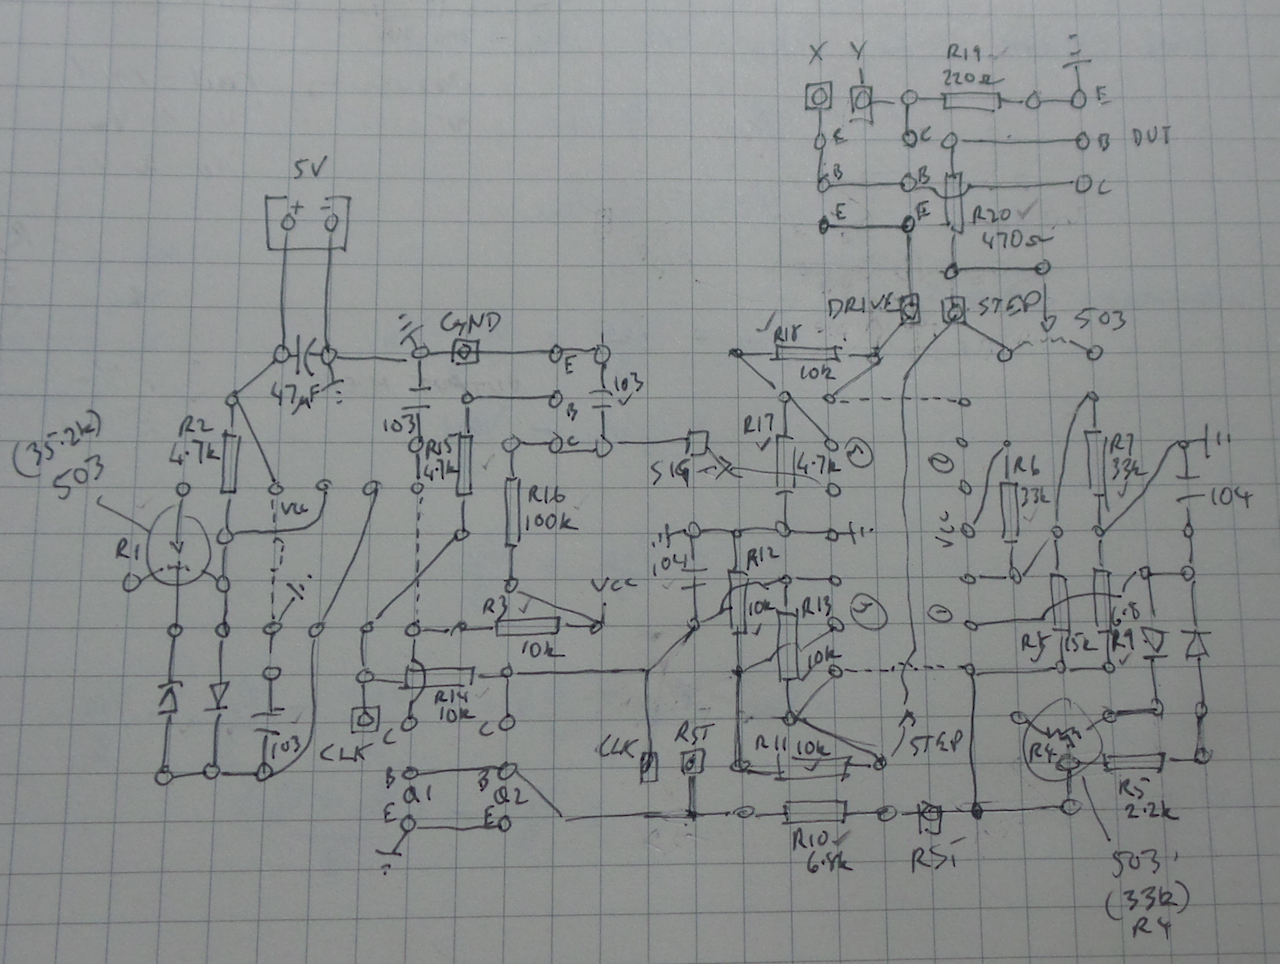 X Y R19
220Ω
E
E C B DUT
B B C
E E R20
470Ω
5V
+ -
DRIVE STEP 503
GND
R18
10k
E
47µF
103
103
B
(35.2k)
503
R2
4.7k
R15
4.7k
C
R17
4.7k
SIG
R6
33k
R7
33k
104
Vcc
R16
100k
Vcc
R1
104
R12
10k
VCC
R3
10k
R13
10k
6.8
R8 15k R9
R14
10k
103
CLK
C C
CLK RST
R11 10k
STEP
R4
R5
2.2k
B B
Q1 Q2
E E
R10
6.8k
RST
503
(33k)
R4